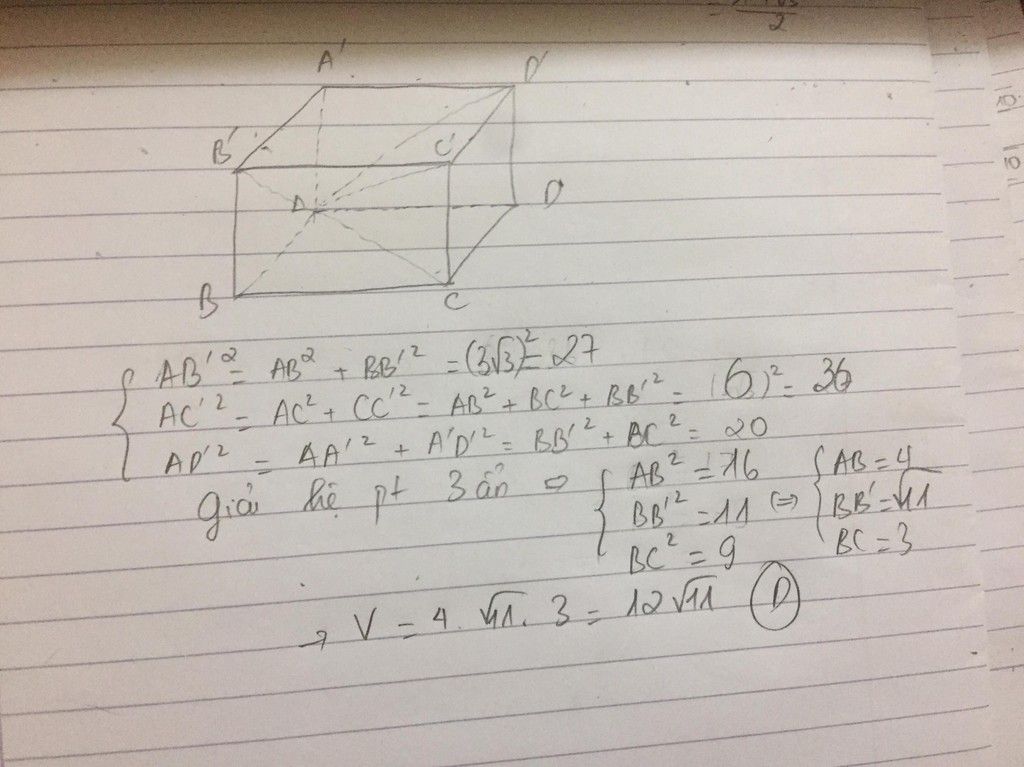 2
A' D'
B' C'
A D
B C
AB'² = AB² + BB'² = (3√3)² = 27
AC'² = AC² + CC'² = AB² + BC² + BB'² = (6)² = 36
AD'² = AA'² + A'D'² = BB'² + BC² = 20
Giải hệ pt 3 ẩn ⇔ { AB² = 16 { AB = 4
BB'² = 11 ⇔ BB' = √11
BC² = 9 BC = 3
→ V = 4. √11. 3 = 12√11 D